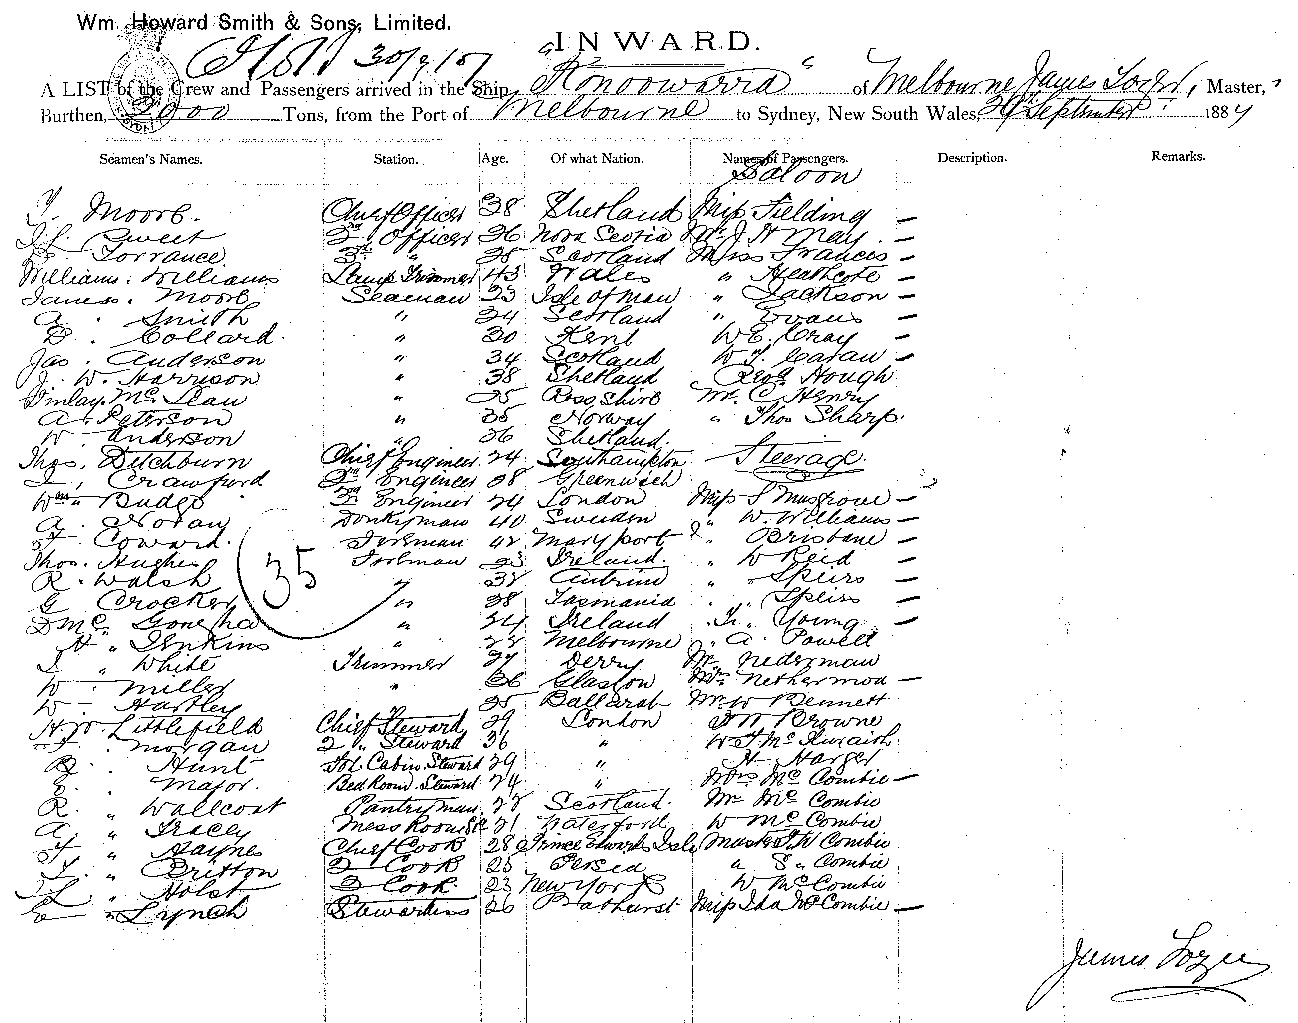 Wm. Howard Smith & Sons, Limited.
INWARD.
A LIST of the Crew and Passengers arrived in the Ship "Konoowarra" of Melbourne, James Lozey, Master,
Burthen, 2000 Tons, from the Port of Melbourne to Sydney, New South Wales, September 188
Seamen's Names. Station. Age. Of what Nation. Names of Passengers. Description. Remarks.
Saloon
Moore. Chief Officer 38 Shetland Miss Fielding —
Sweet 2nd Officer 26 Nova Scotia Mr J H May —
Torrance 3rd " Scotland Miss Frances —
Williams. Williams Lamp Trimmer 43 Wales " Heathcote —
James. Moore Seaman 33 Isle of Man " Jackson —
A. Smith " 24 Scotland " Evans —
D. Collard. " 30 Kent W E. Cray —
Jas. Anderson " 34 Scotland W —
J. W. Harrison " 38 Shetland Hough
Finlay. McLean " 25 Ross Shire Mr. C. Henry
A. Peterson " 35 Norway " Thos Sharp.
W. Anderson " 36 Shetland.
Thos. Ditchburn Chief Engineer 24 Southampton Steerage
Crawford 2nd Engineer 28 Greenwich
Wm. Budge 3rd Engineer 24 London Miss S Musgrove —
A. Donkyman 40 Sweden " W. Williams —
Coward. Fireman 42 Maryport " Brisbane —
Thos. Hughes Fireman 23 Ireland. " W Reid —
R. Walsh " Antrim " Speirs —
35
G Crocker " 28 Tasmania " Speirs —
D Mc " 24 Ireland Young —
H " Jenkins " 22 Melbourne " A. Powell
White Trimmer 27 Derry Mr. Nederman
W. Miller " 26 Glasgow Mrs —
W. Hartley 25 Ballarat Mr W Bennett
H. W. Littlefield Chief Steward 29 London Browne
Morgan 2 " Steward 36 " W
Hunt Cabin Steward 29 " H. Harger
Major. Bed Room Steward 24 " Mrs McCombie —
R. " Wallcoat Pantryman 22 Scotland. Mr McCombie
A, " Tracey Mess Room 21 Waterford W McCombie
" Haynes Chief Cook 28 Prince Edwards Isle Master Combie
" Britton 2 Cook 25 " S " Combie
" Holst 3 Cook. 23 New York W McCombie
" Lynch Stewardess 26 Bathurst Miss Ida McCombie —
James Lozey